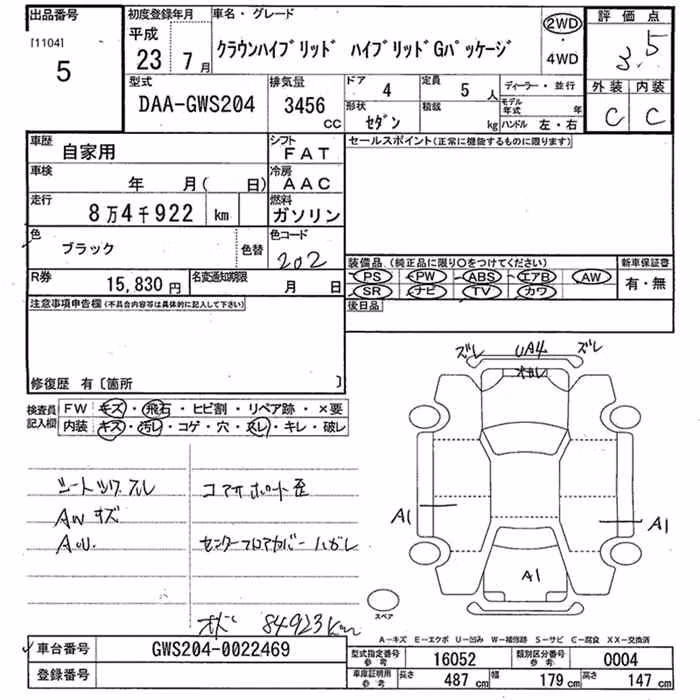 出品番号
[1104]
5
初度登録年月
平成
23 7月
車名・グレード
クラウンハイブリッド ハイブリッドGパッケージ
2WD
・
4WD
評価点
3.5
外装 内装
C C
型式
DAA-GWS204
排気量
3456
CC
ドア
4
定員
5 人
形状
セダン
積載
kg
ディーラー・並行
モデル年式 年
ハンドル 左・右
車歴
自家用
シフト
FAT
車検
年 月( 日)
冷房
AAC
走行
8万4千922 km
燃料
ガソリン
色
ブラック
色替
色コード
202
R券
15,830 円
名変通知期限
月 日
セールスポイント(正常に機能するものに限ります)
装備品 (純正品に限り○をつけてください)
PS PW ABS エアB AW
SR ナビ TV カワ
新車保証書
有・無
後日品
注意事項申告欄(不具合内容等は具体的に記入して下さい)
修復歴 有〔箇所 〕
検査員記入欄
FW キズ・飛石・ヒビ割・リペア跡・×要
内装 キズ・汚レ・コゲ・穴・スレ・キレ・破レ
ズレ UA4 ズレ
A1
A1
A1
スペア
シートシワ スレ
AWキズ
AU.
コアサポート歪
センターフロアカバーハガレ
オド 84923km
A-キズ E-エクボ U-凹み W-補修跡 S-サビ C-腐食 XX-交換済
車台番号
GWS204-0022469
登録番号
型式指定番号
参考
16052
類別区分番号
参考
0004
車庫証明用
参考
長さ 487 cm 幅 179 cm 高さ 147 cm